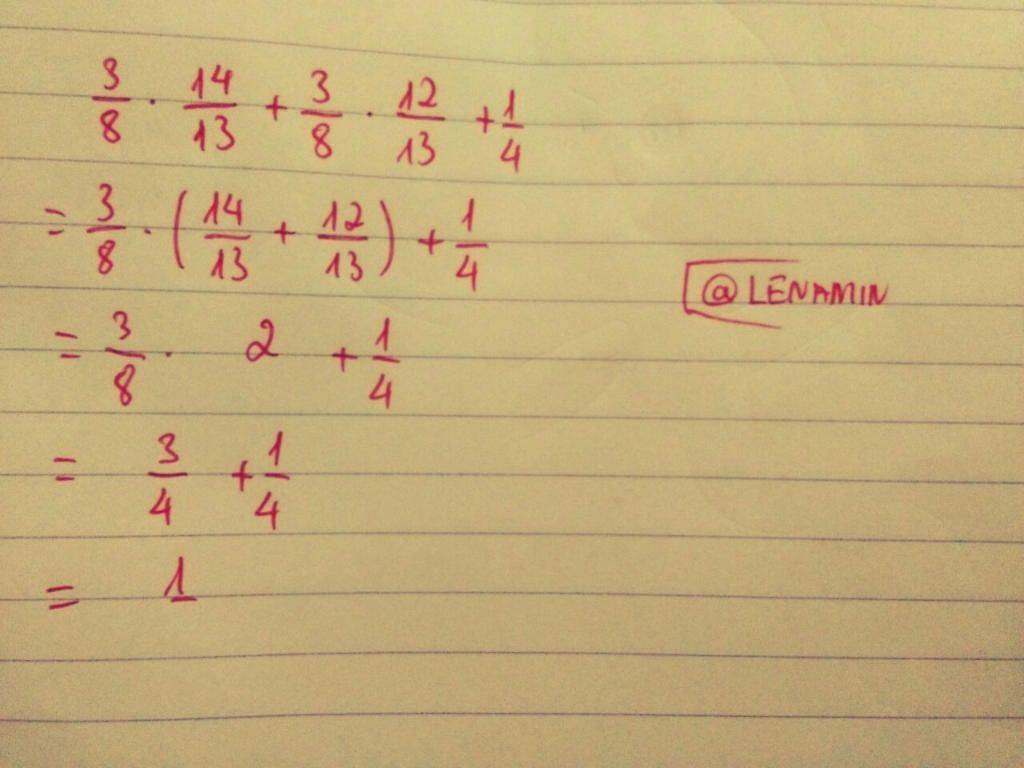 3/8 · 14/13 + 3/8 · 12/13 + 1/4
= 3/8 · (14/13 + 12/13) + 1/4
@LENAMIN
= 3/8 · 2 + 1/4
= 3/4 + 1/4
= 1